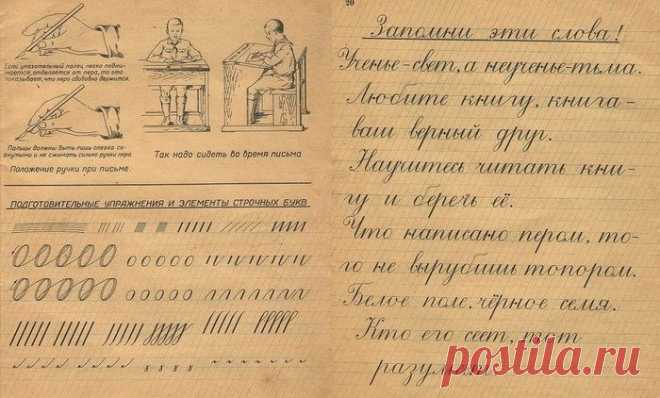 Если указательный палец легко подни-
мается, отделяется от пера, то это
показывает, что перо свободно держится.
Пальцы должны быть лишь слегка со-
гнуты и не сжимать сильно ручки пера
Положение ручки при письме.
Так надо сидеть во время письма
ПОДГОТОВИТЕЛЬНЫЕ УПРАЖНЕНИЯ И ЭЛЕМЕНТЫ СТРОЧНЫХ БУКВ
20
Запомни эти слова!
Ученье-свет, а неученье-тьма.
Любите книгу, книга-
ваш верный друг.
Научитесь читать кни-
гу и беречь её.
Что написано пером, то-
го не вырубишь топором.
Белое поле, чёрное семя.
Кто его сеет, тот
postila.ru